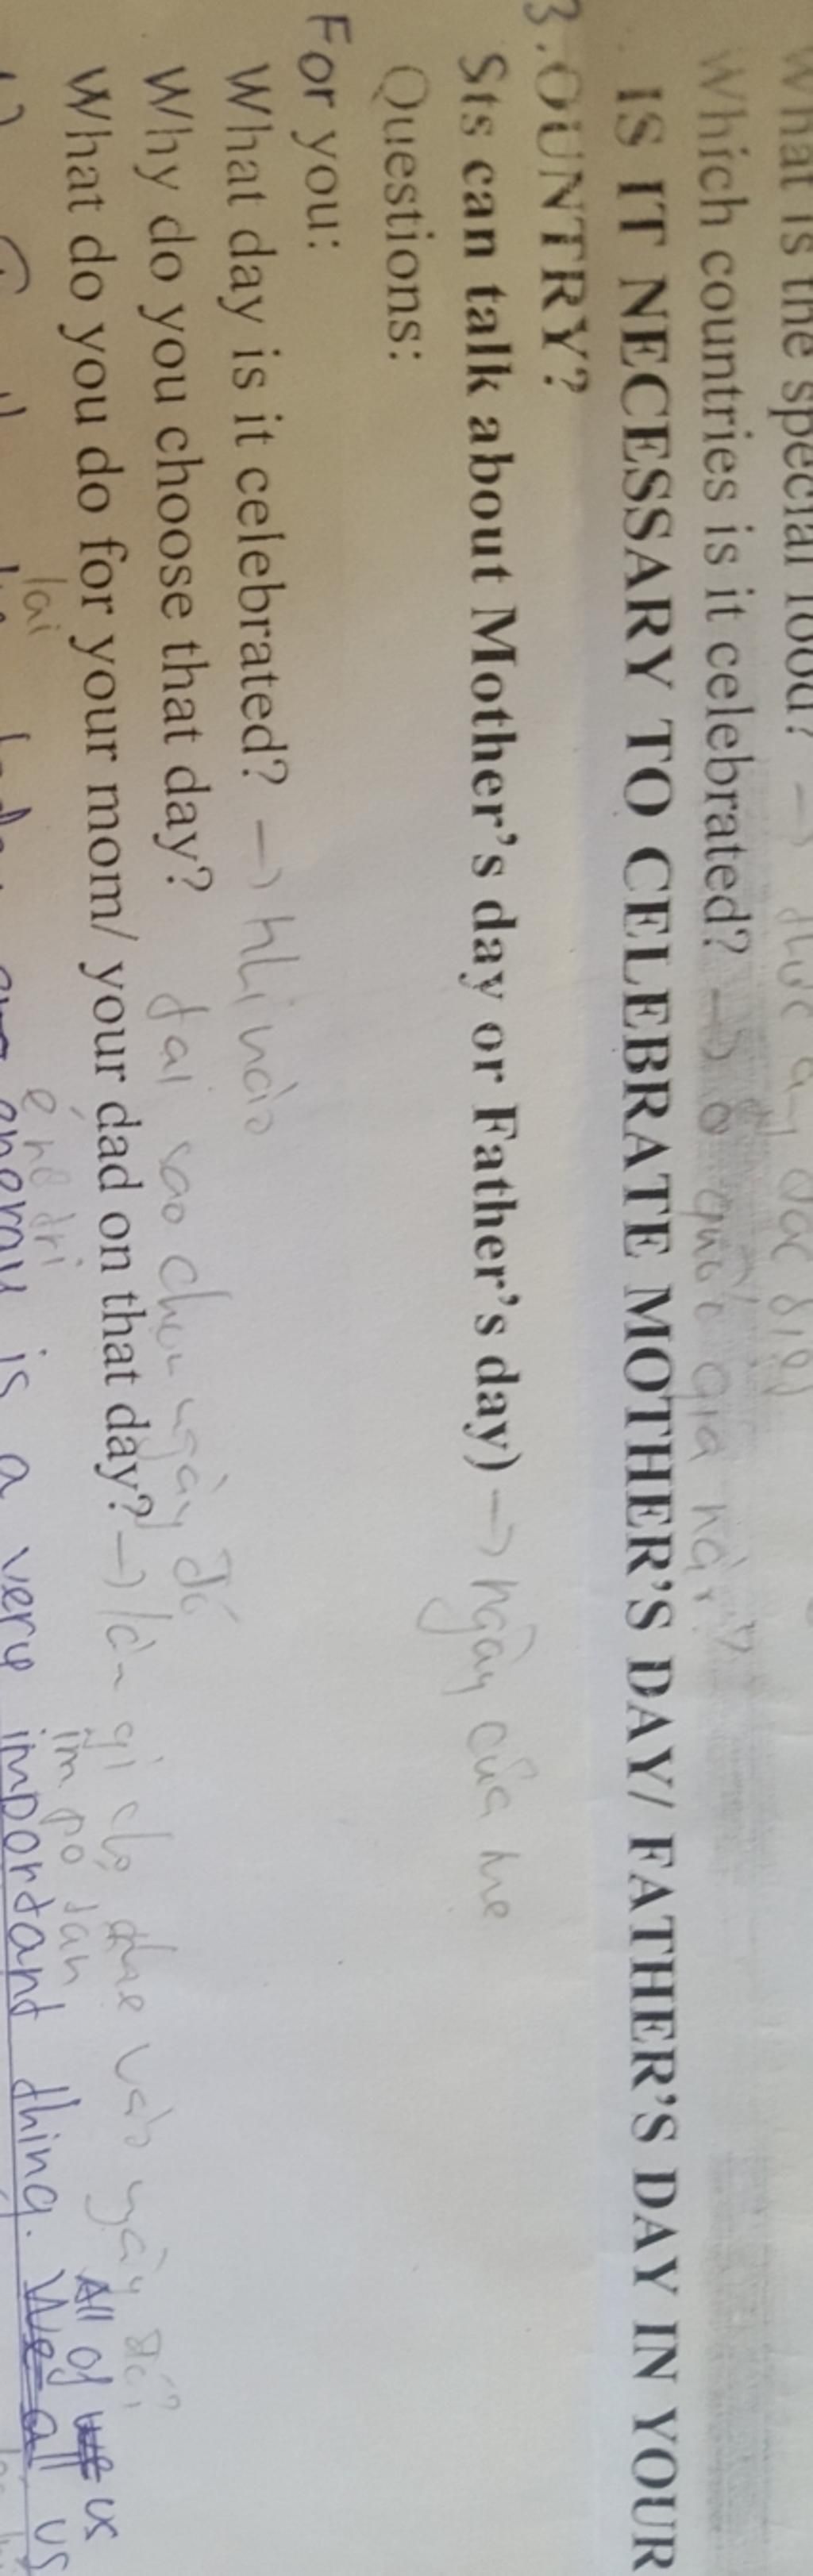 What is the special food? →
Which countries is it celebrated? → ở quốc gia nào?
IS IT NECESSARY TO CELEBRATE MOTHER'S DAY/ FATHER'S DAY IN YOUR
3. OUNTRY?
Sts can talk about Mother's day or Father's day) → ngày của mẹ
Questions:
For you:
What day is it celebrated? → khi nào
Why do you choose that day? tại sao chọn ngày đó
What do you do for your mom/ your dad on that day? → làm gì cho mẹ vào ngày đó?
lai im po tan All of us
energy is a very important thing. We all us